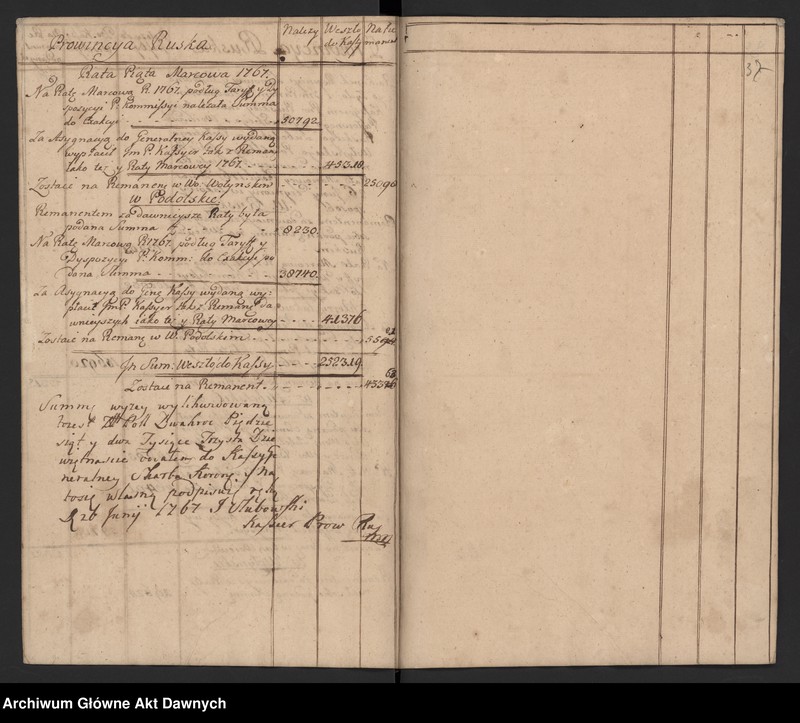 Prowincya Ruska
Należy
Weszło do Kassy
Na Re manent
37
Rata Rata Marcowa 1767.
Na Ratę Marcową R. 1767. podług Taryff y Dy
spozycyi P. Kommissyi należała Summa
do Exakcyi - - - 30792.
Za Asygnacyą do Generalney Kassy wydaną
wypłacił Jm P. Kassyer tak z Reman:
iako też y Raty Marcowey 1767. - - - 45318.
Zostaie na Remanent w Wo: Wołynskim - - -
w Podolskie:
Remanentem za Dawnieysze Raty była
podana Summa - - - 8230.
Na Ratę Marcową R. 1767. podług Taryff y
Dyspozycyi P. Komm: do Exakcyi po
dana Summa - - - 38740.
Za Asygnacyą do Gene Kassy wydaną wy:
płacił Jm P. Kassyer tak z Remanę Da
wnieyszych iako też y Raty Marcowey - - - 41376
Zostaie na Remanę w W. Podolskim - - -
Jn Sum: Weszło do Kassy - - - 252319.
Zostaie na Remanent. - - -
Summę wyzey wylikwidowaną
Dwakroc Pięcdzie
siąt y dwa Tysiące Trzysta Dzie
więtnascie oddałem do Kassy Ge
neralney Skarbu Koronę. y Na
to się własną podpisuię ręką
D 26 Junij 1767 J Słubowski
Kassier Prow Rus
kiey
Archiwum Główne Akt Dawnych